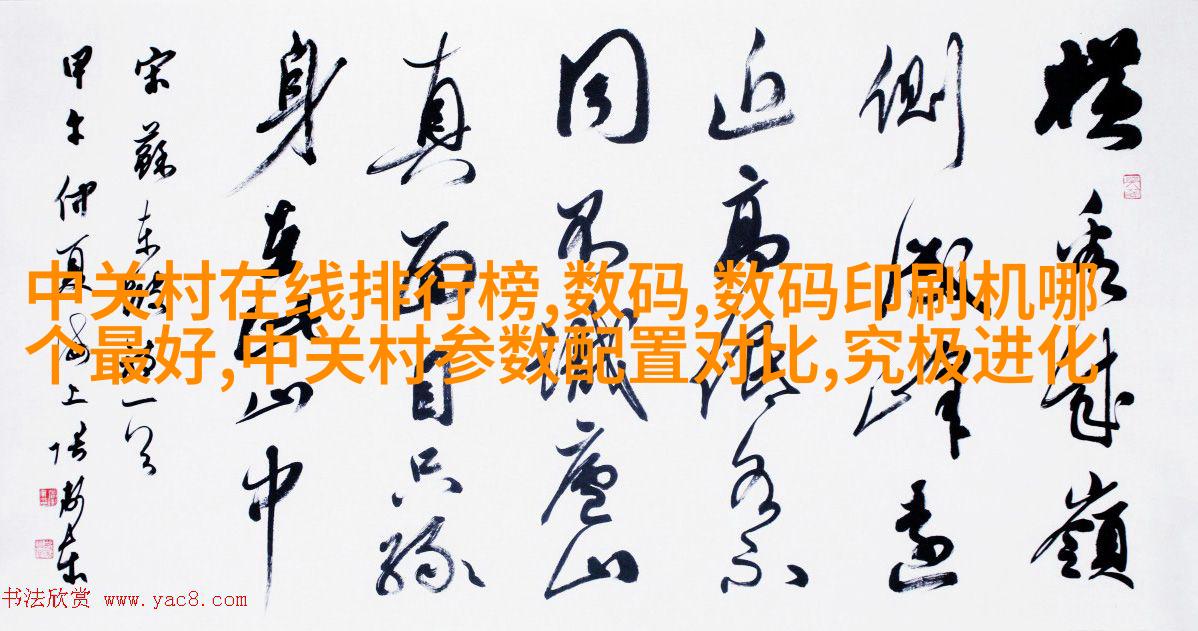 橫看成嶺
側成峰遠
近高低各不
同不識廬山
真面目只緣
身在此山中
宋蘇東坡詩一首
甲午仲夏海上
中关村在线排行榜,数码,数码印刷机哪
个最好,中关村参数配置对比,究极进化
书法欣赏 www.yac8.com